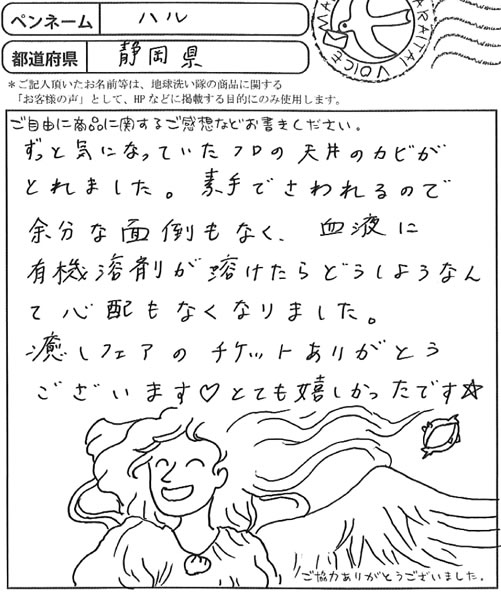 ペンネーム ハル
都道府県 静岡県
＊ご記入頂いたお名前等は、地球洗い隊の商品に関する
「お客様の声」として、HPなどに掲載する目的にのみ使用します。
ご自由に商品に関するご感想などお書きください。
ずっと気になっていたフロの天井のカビが
とれました。素手でさわれるので
余分な面倒もなく、血液に
有機溶剤が溶けたらどうしようなん
て心配もなくなりました。
癒しフェアのチケットありがとう
ございます♡とても嬉しかったです☆
ご協力ありがとうございました。
ARAITAI VOICE MA